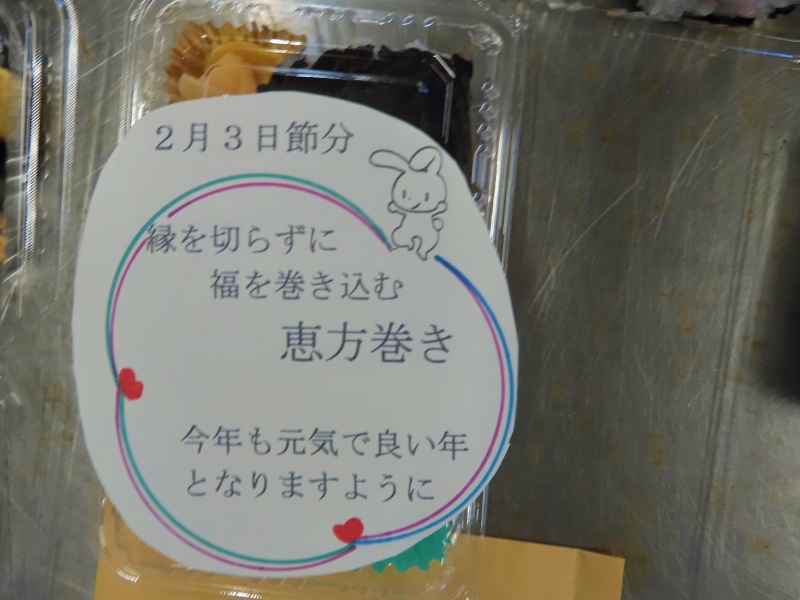 ２月３日節分
縁を切らずに
福を巻き込む
恵方巻き
今年も元気で良い年
となりますように